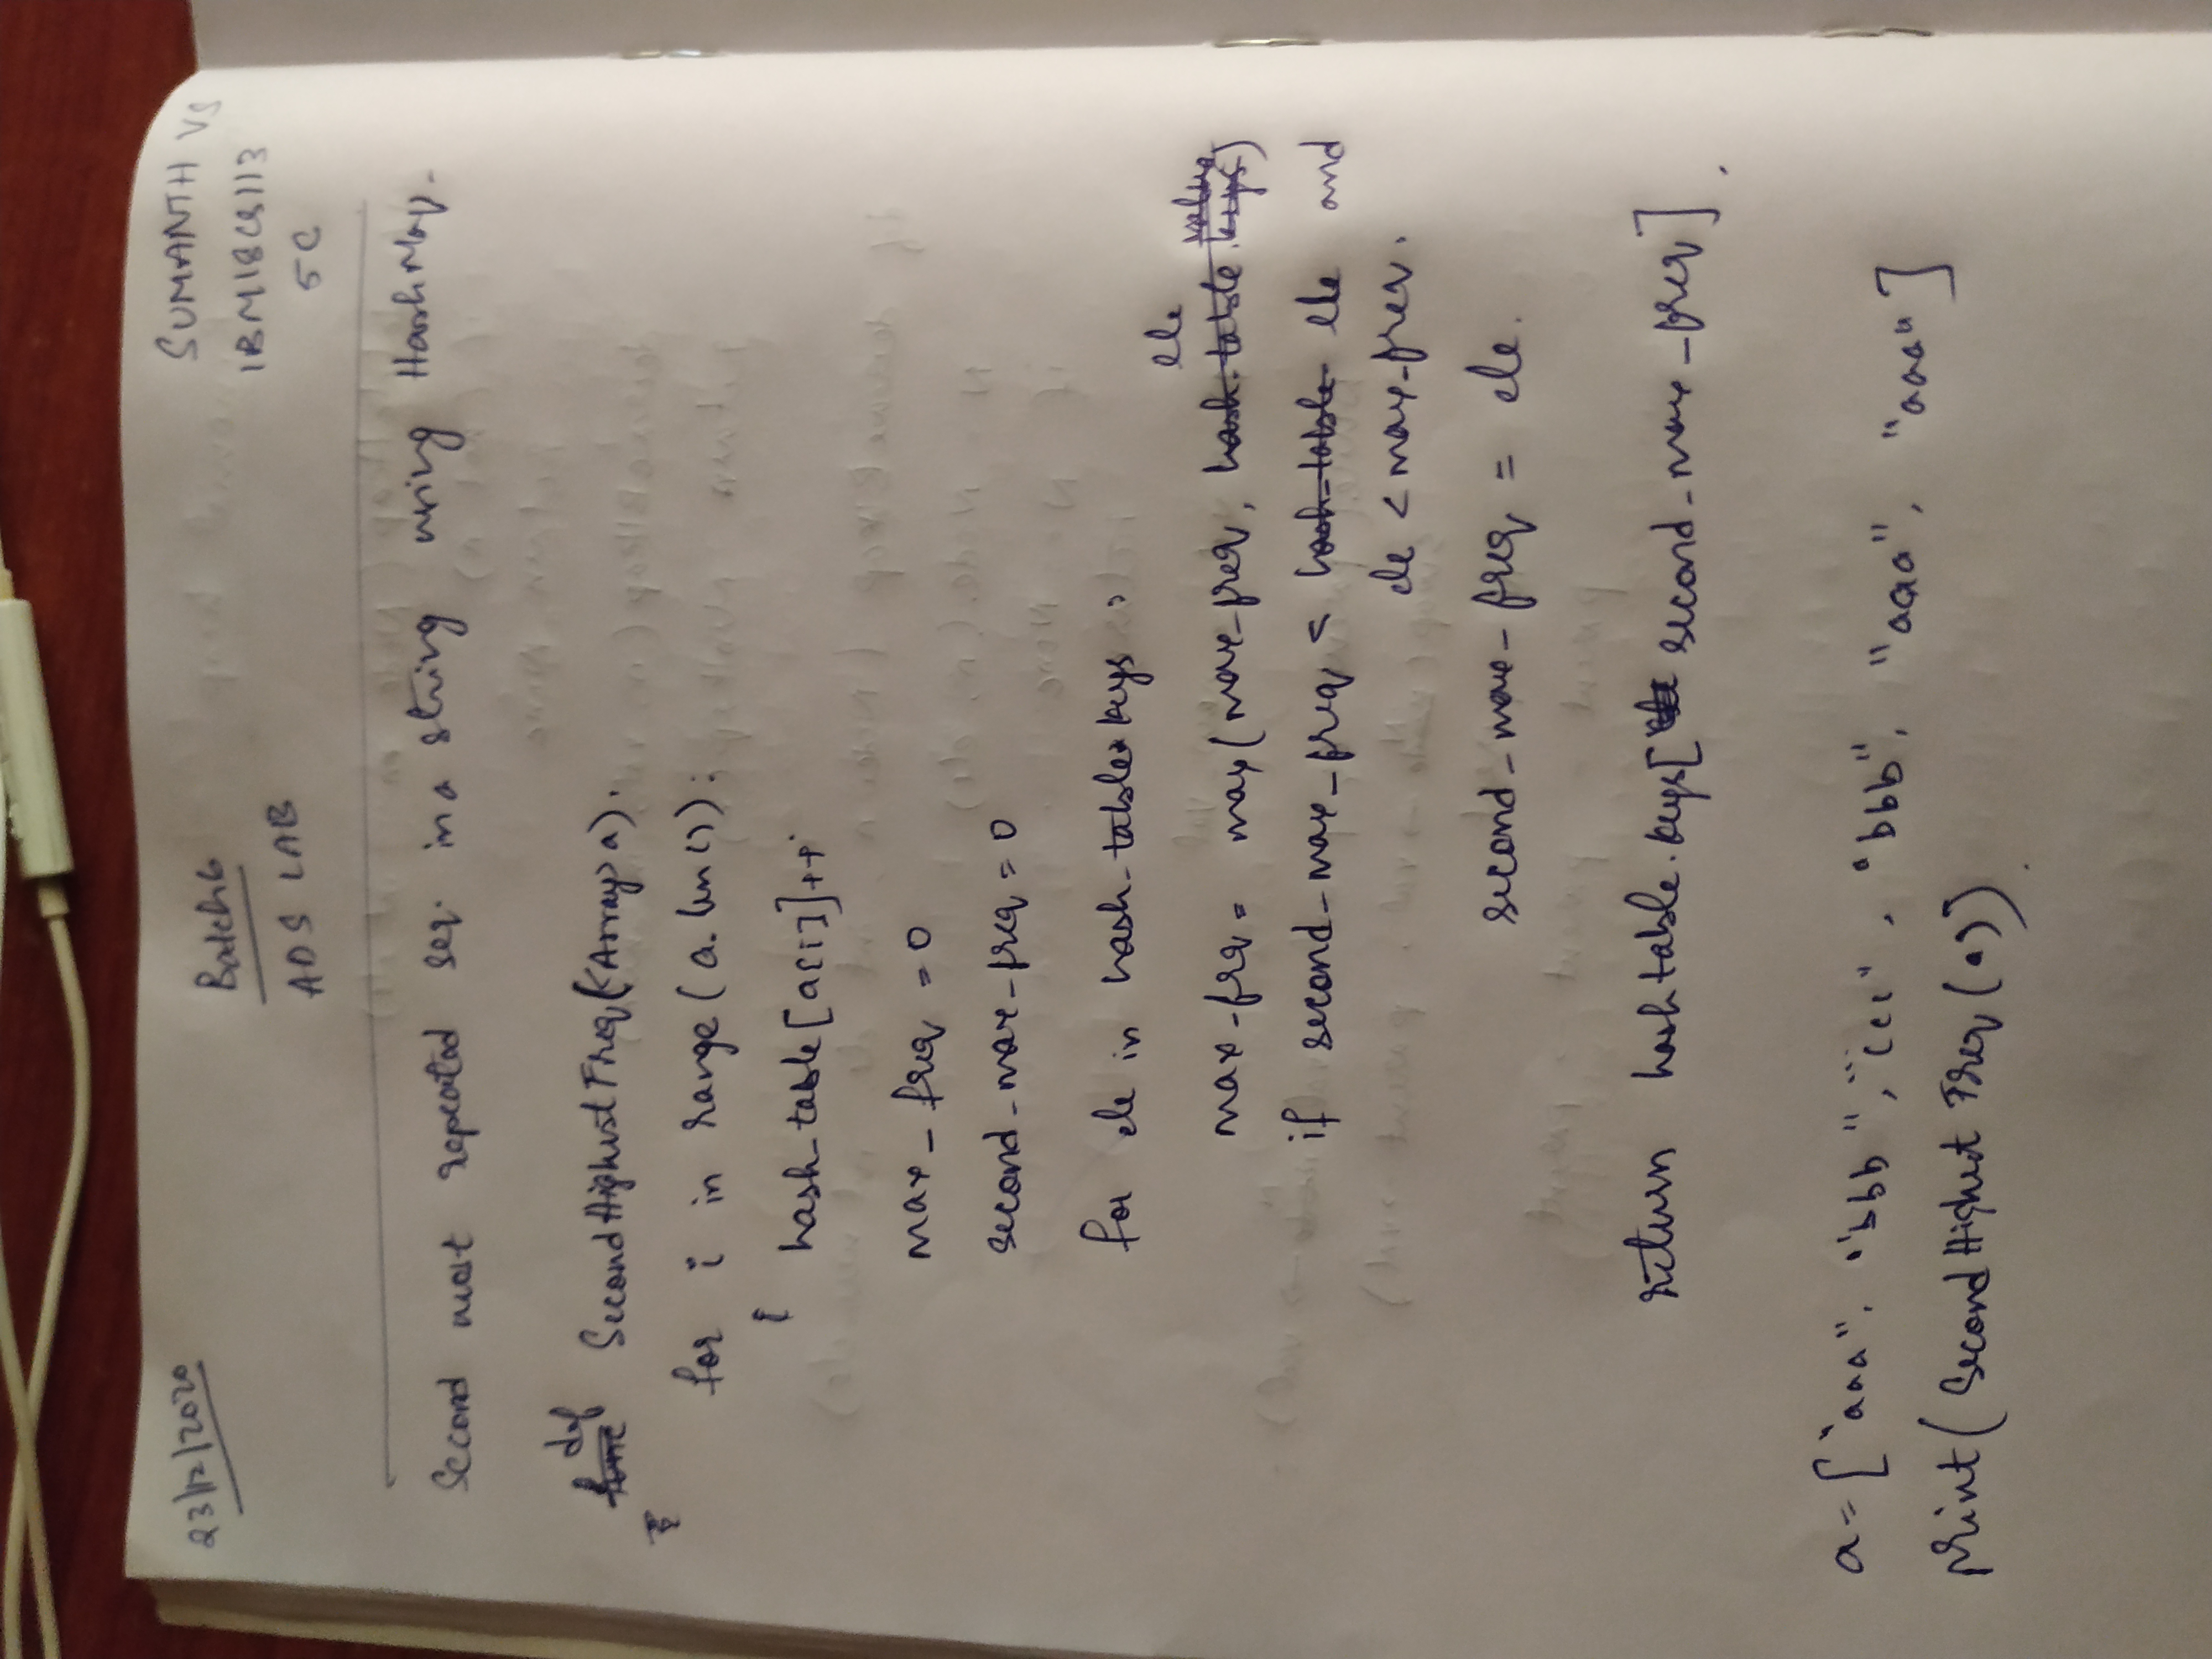 23/12/2020 Batch6 SUMANTH VS
ADS LAB 1BM18CS113
5C
Second most repeated seq. in a string using HashMap.
def SecondHighestFreq(<Array> a).
for i in range (a.len()):
hash_table[a[i]]++
max_freq = 0
second-max-freq = 0
for ele in hash-table keys:
ele
max-freq = max(max-freq, hash-table.keys)
if second-max-freq < hash-table ele and
ele < max-freq.
second-max-freq = ele.
return hashtable.keys[second-max-freq].
a=["aaa", "bbb", "ccc", "bbb", "aaa", "aaa"]
print(SecondHighestFreq(a)).